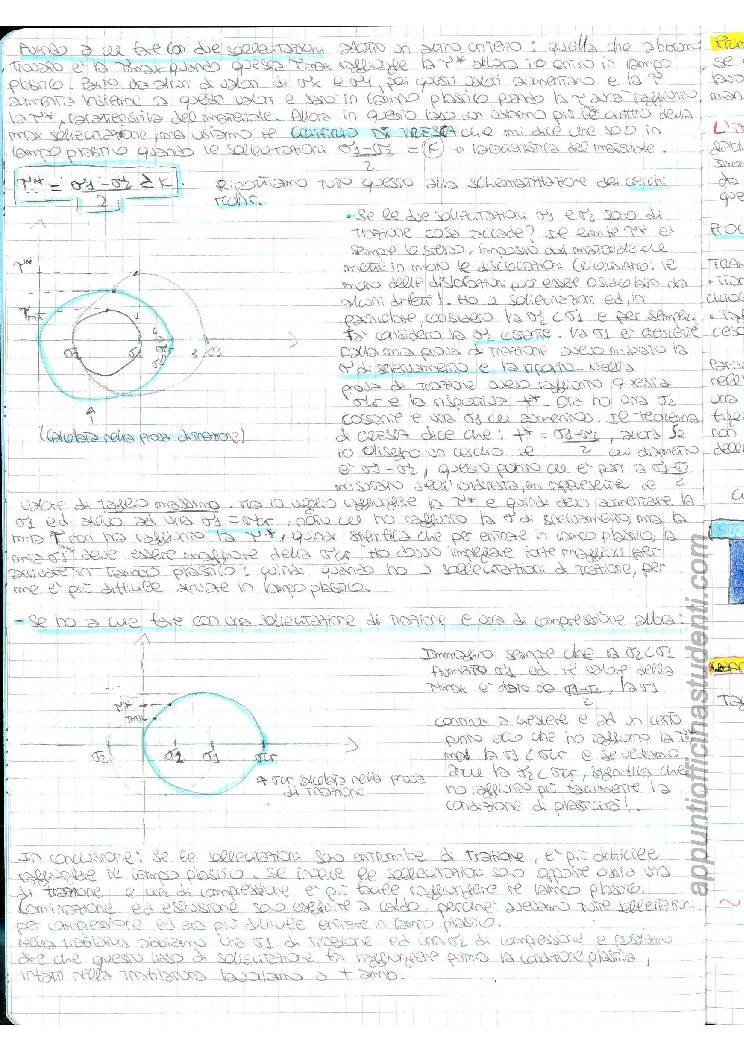 Avendo a che fare con due sollecitazioni adotto un altro criterio: quella che abbiamo
trovato è la τmax quando questa τmax raggiunge la τ* allora io entro in campo
plastico. Parto da alcuni valori di σ1 e σ2, poi questi valori aumentano e la τ
aumenta insieme a questi valori e sarò in campo plastico quando la τ avrà raggiunto
la τ*, caratteristica del materiale. Allora in questo caso non usiamo più il criterio della
max sollecitazione, ma usiamo il CRITERIO DI TRESCA che mi dice che sarò in
campo plastico quando le sollecitazioni σ1-σ2/2 = (K) → caratteristica del materiale.
τ* = σ1-σ2/2 ≥ K. Riportiamo tutto questo alla schematizzazione dei cerchi
mohr.
- Se le due sollecitazioni σ1 e σ2 sono di
trazione cosa accade? Il limite τ* è
sempre lo stesso, imposto dal materiale che
mette in moto le dislocazioni (ricordiamo: il
moto delle dislocazioni può essere ostacolato da
alcuni difetti). Ho 2 sollecitazioni ed in
particolare, considero la σ2 < σ1 e per semplici
tà considero la σ2 costante. La σ1 è crescente
Dalla mia prova di trazione avevo misurato la
σ di snervamento e la riporto. Nella
prova di trazione avevo raggiunto questa
σcr e la rispettiva τ*. Ora ho una σ2
costante e una σ1 che aumenta. Il teorema
di Tresca dice che: τ* = σ1-σ2/2, allora se
io disegno un cerchio il cui diametro
è σ1-σ2, questo punto che è pari a σ1-σ2/2
misurato sull'ordinata, mi rappresenta il
τmax
τ*
σ2
σ1
σcr
σ1
(calcolata nella prova di trazione)
valore di taglio massimo. Ma io voglio raggiungere la τ* e quindi devo aumentare la
σ1 ed arrivo ad una σ1 = σcr, noto che ho raggiunto la σ di snervamento, ma la
mia τ non ha raggiunto la τ*, quindi significa che per entrare in campo plastico, la
mia σ1 deve essere maggiore della σcr. Ho dovuto impiegare forze maggiori per
arrivare in campo plastico: quindi quando ho 2 sollecitazioni di trazione, per
me è più difficile arrivare in campo plastico.
- Se ho a che fare con una sollecitazione di trazione e una di compressione allora:
Immagino sempre che la σ2 < σ1
Aumento σ1 ed il valore della
τmax è dato da σ1-σ2/2, la σ1
continua a crescere e ad un certo
punto vedo che ho raggiunto la τ*
ma la σ1 < σcr e se vediamo
anche la σ2 < σcr, significa che
ho raggiunto più facilmente la
condizione di plasticità!.
τ*
τmax
σ2
σ2
σ1
σcr
* σcr calcolata nella prova
di trazione
In conclusione: se le sollecitazioni sono entrambe di trazione, è più difficile
raggiungere il campo plastico. Se invece le sollecitazioni sono opposte ossia una
di trazione e una di compressione è più facile raggiungere il campo plastico.
Laminazione ed estrusione sono eseguite a caldo, perché avevamo tutte sollecitazioni
per compressione ed era più difficile entrare in campo plastico.
Nella trafilatura abbiamo una σ1 di trazione ed una σ2 di compressione e possiamo
dire che questo caso di sollecitazione fa raggiungere prima la condizione plastica,
infatti nella trafilatura lavoriamo a T amb.
appuntiofficinastudenti.com